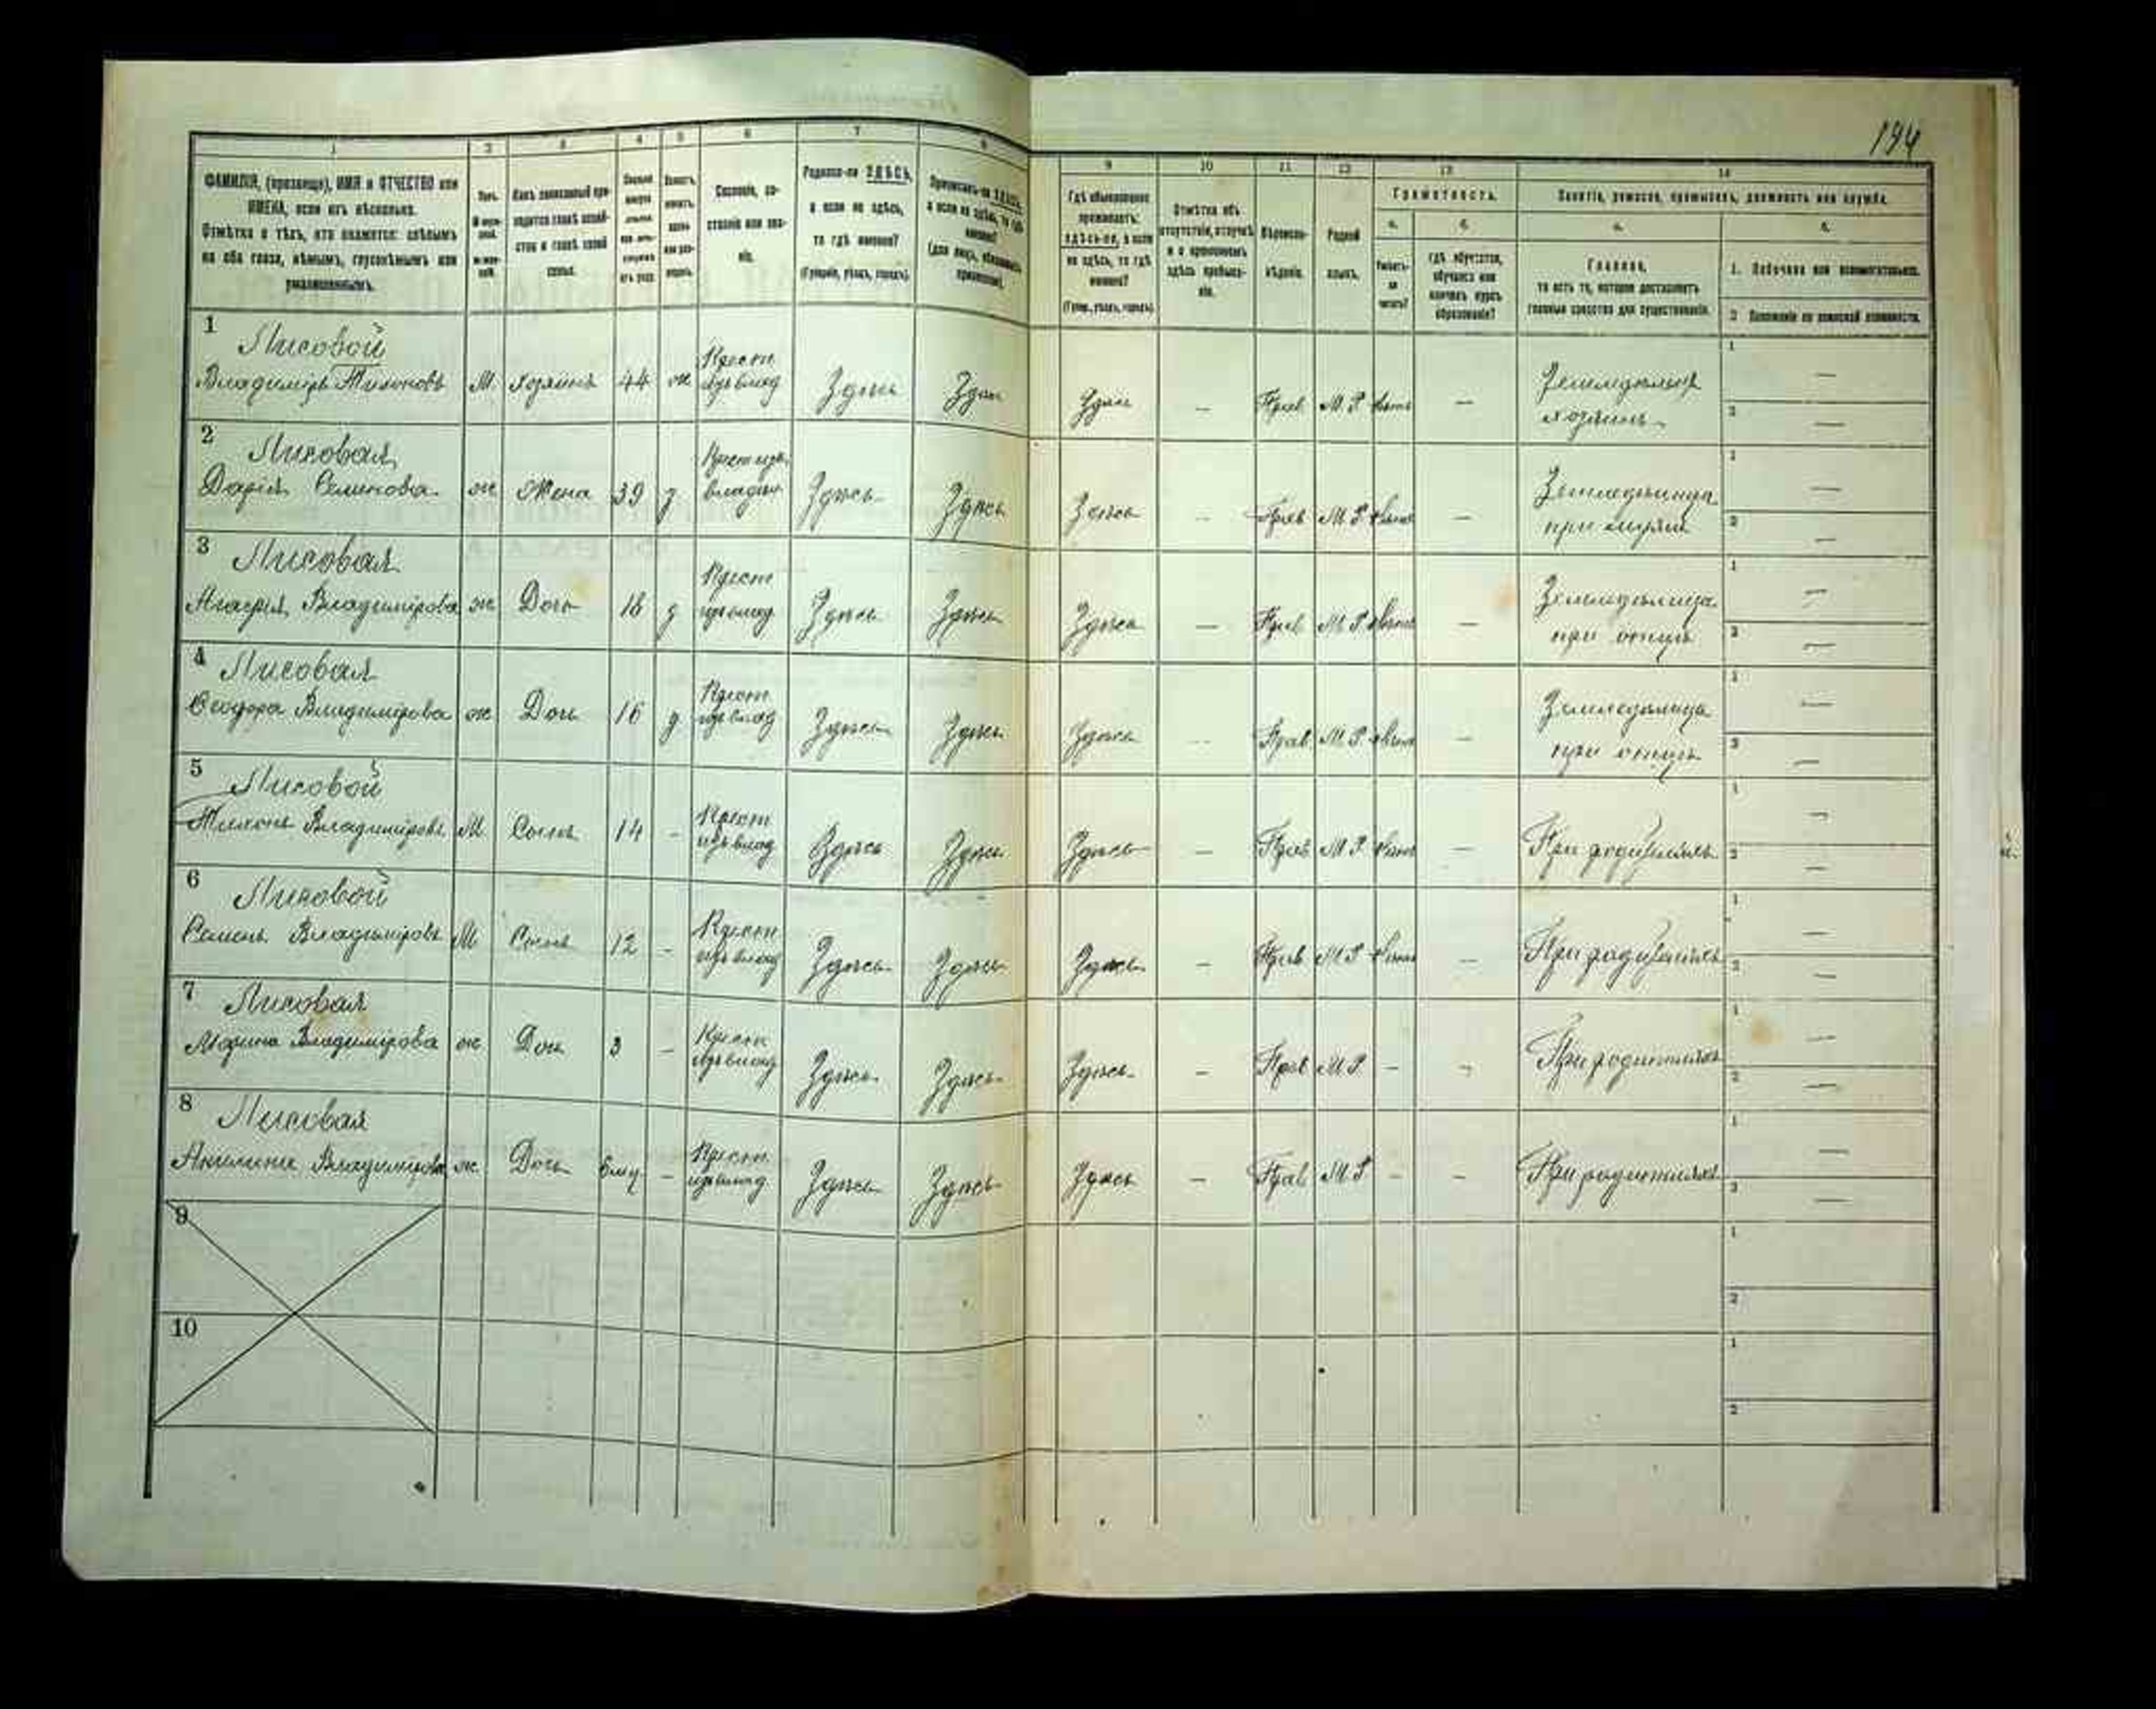 194
1 2 3 4 5 6 7 8 9 10 11 12 13 14
ФАМИЛІЯ, (прозвище), ИМЯ и ОТЧЕСТВО или
ИМЕНА, если ихъ нѣсколько.
Отмѣтка о тѣхъ, кто окажется: слѣпымъ
на оба глаза, нѣмымъ, глухонѣмымъ или
умалишеннымъ.
Полъ.
Какъ записанный при-
ходится главѣ хозяй-
ства и главѣ своей
семьи.
Сословіе, со-
стояніе или зва-
ніе.
Родился-ли ЗДѢСЬ,
а если не здѣсь,
то гдѣ именно?
(Губернія, уѣздъ, городъ).
Приписанъ-ли ЗДѢСЬ,
а если не здѣсь, то гдѣ
именно?
(для лицъ, обязанныхъ
припискою).
Гдѣ обыкновенно
проживаетъ:
здѣсь-ли, а если
не здѣсь, то гдѣ
именно?
(Губер., уѣздъ, городъ).
Отмѣтка объ
отсутствіи, отлучкѣ
и о временномъ
здѣсь пребыва-
ніи.
Вѣроиспо-
вѣданіе.
Родной
языкъ.
Грамотность.
а. б.
Умѣетъ-
ли
читать?
гдѣ обучается,
обучался или
кончилъ курсъ
образованія?
Занятіе, ремесло, промыселъ, должность или служба.
а. б.
Главное,
то есть то, которое доставляетъ
главныя средства для существованія.
1. Побочное или вспомогательное.
2. Положеніе по воинской повинности.
1 Лисовой
Владиміръ Тихоновъ М. хозяинъ 44 ж Крест. изъ влад Здѣсь Здѣсь Здѣсь — Прав М. Р. — Земледѣлецъ хозяинъ — —
2 Лисовая
Дарія Семенова ж Жена 39 з Крест изъ владѣл Здѣсь Здѣсь Здѣсь — Прав М. Р. — Земледѣлица при мужѣ — —
3 Лисовая
Агафія Владимірова ж Дочь 18 д Крест изъ влад Здѣсь Здѣсь Здѣсь — Прав М. Р. — Земледѣлица при отцѣ — —
4 Лисовая
Феодора Владимірова ж Дочь 16 д Крест. изъ влад Здѣсь Здѣсь Здѣсь — Прав М. Р. — Земледѣлица при отцѣ — —
5 Лисовой
Тихонъ Владиміровъ М Сынъ 14 - Крест изъ влад Здѣсь Здѣсь Здѣсь — Прав М. Р. — При родителяхъ — —
6 Лисовой
Семенъ Владиміровъ М Сынъ 12 - Крест изъ влад Здѣсь Здѣсь Здѣсь — Прав М. Р. — При родителяхъ — —
7 Лисовая
Марина Владимірова ж Дочь 3 - Крест изъ влад Здѣсь Здѣсь Здѣсь — Прав М. Р. - - При родителяхъ — —
8 Лисовая
Владимірова ж Дочь - Крест. изъ влад Здѣсь Здѣсь Здѣсь — Прав М. Р. - - При родителяхъ — —
9
10